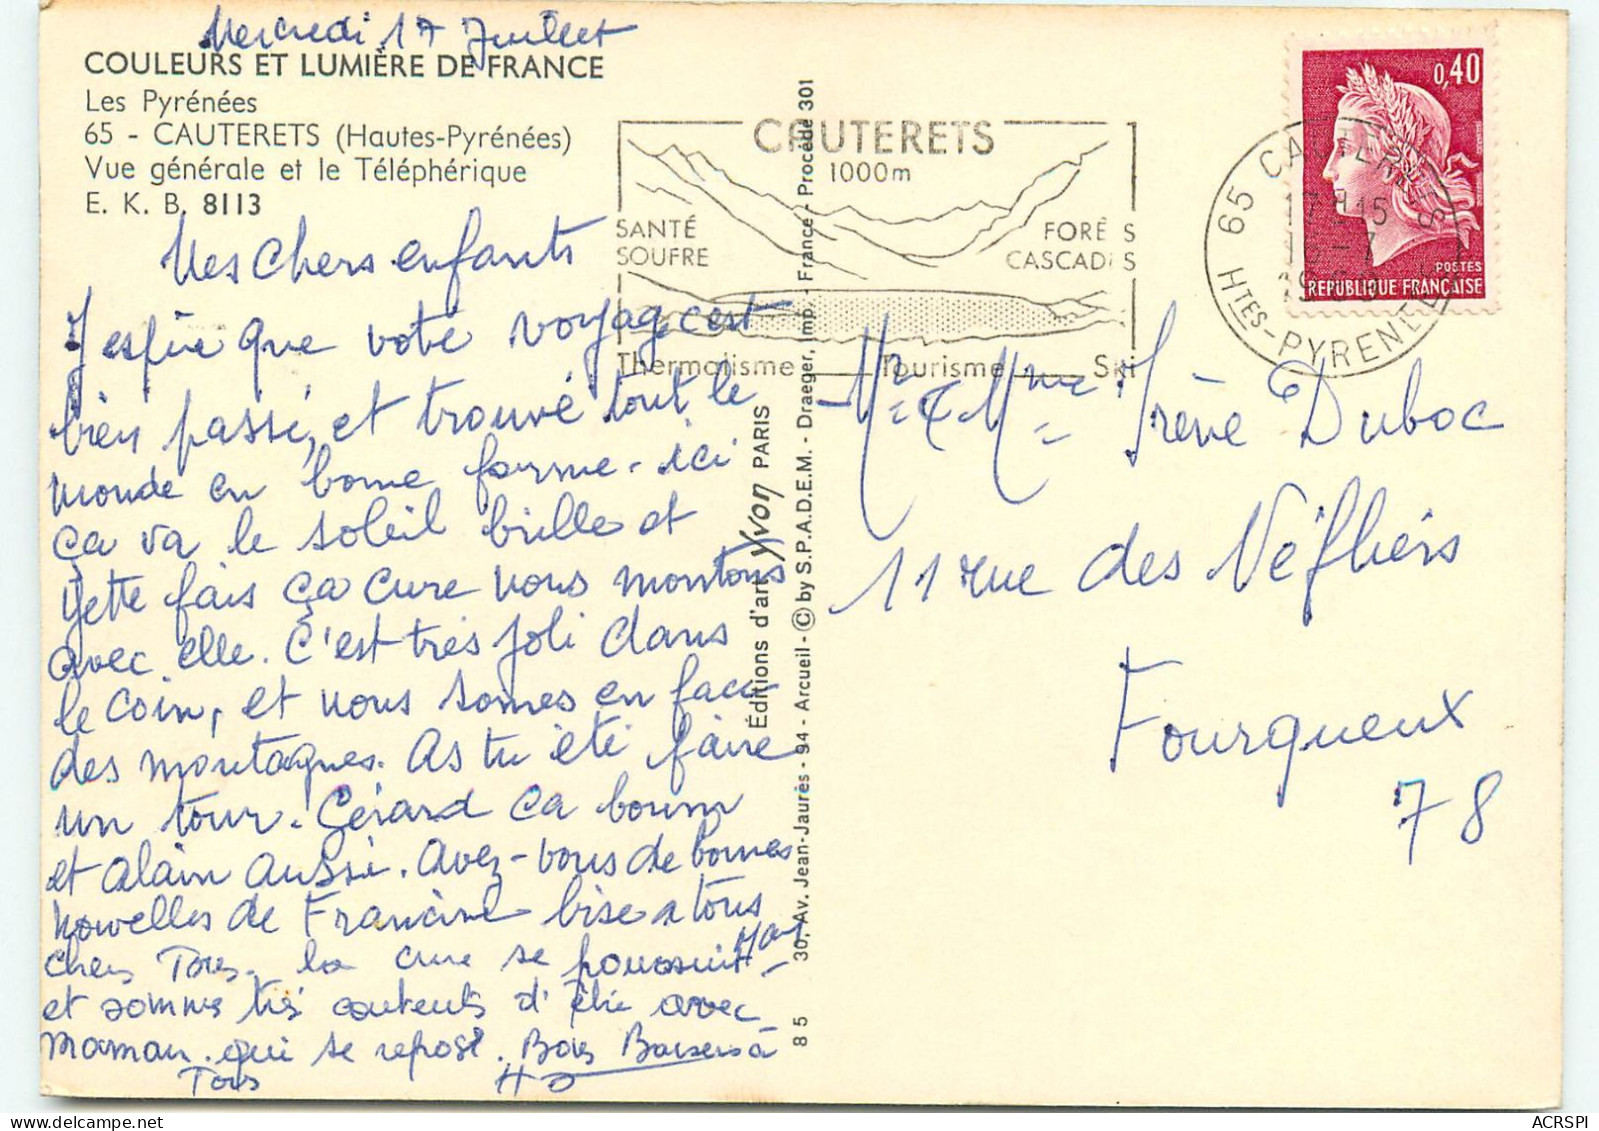 Mercredi 17 Juillet
COULEURS ET LUMIÈRE DE FRANCE
Les Pyrénées
65 - CAUTERETS (Hautes-Pyrénées)
Vue générale et le Téléphérique
E. K. B. 8113
Mes chers enfants
J espère que votre voyage c'est
bien passé, et trouvé tout le
monde en bonne forme. ici
ça va le soleil brille et
Yette fais ça cure nous montons
avec elle. C'est très joli dans
le coin, et nous somes en face
des montagnes. As tu été faire
un tour. Gérard ça boum
et Alain aussi. avez-vous de bonnes
nouvelles de Francine bise a tous
chers Tous. la cure se poursuit
et sommes très contents d'être avec
maman. qui se repose. Bons Baisers à
Tous
CAUTERETS
1000m
SANTÉ
SOUFRE
FORÊTS
CASCADES
Thermalisme Tourisme Ski
65 CAUTERETS
17H15
16-7
HTES-PYRENEES
0,40
POSTES
REPUBLIQUE FRANÇAISE
Éditions d'art Yvon PARIS
85 30, Av. Jean-Jaurès - 94 - Arcueil - © by S.P.A.D.E.M. - Draeger, imp. - France - Procédé 301
Mr & Mme Irène Duboc
11 rue des Néfliers
Fourqueux
78
delcampe.net
ACRSPI